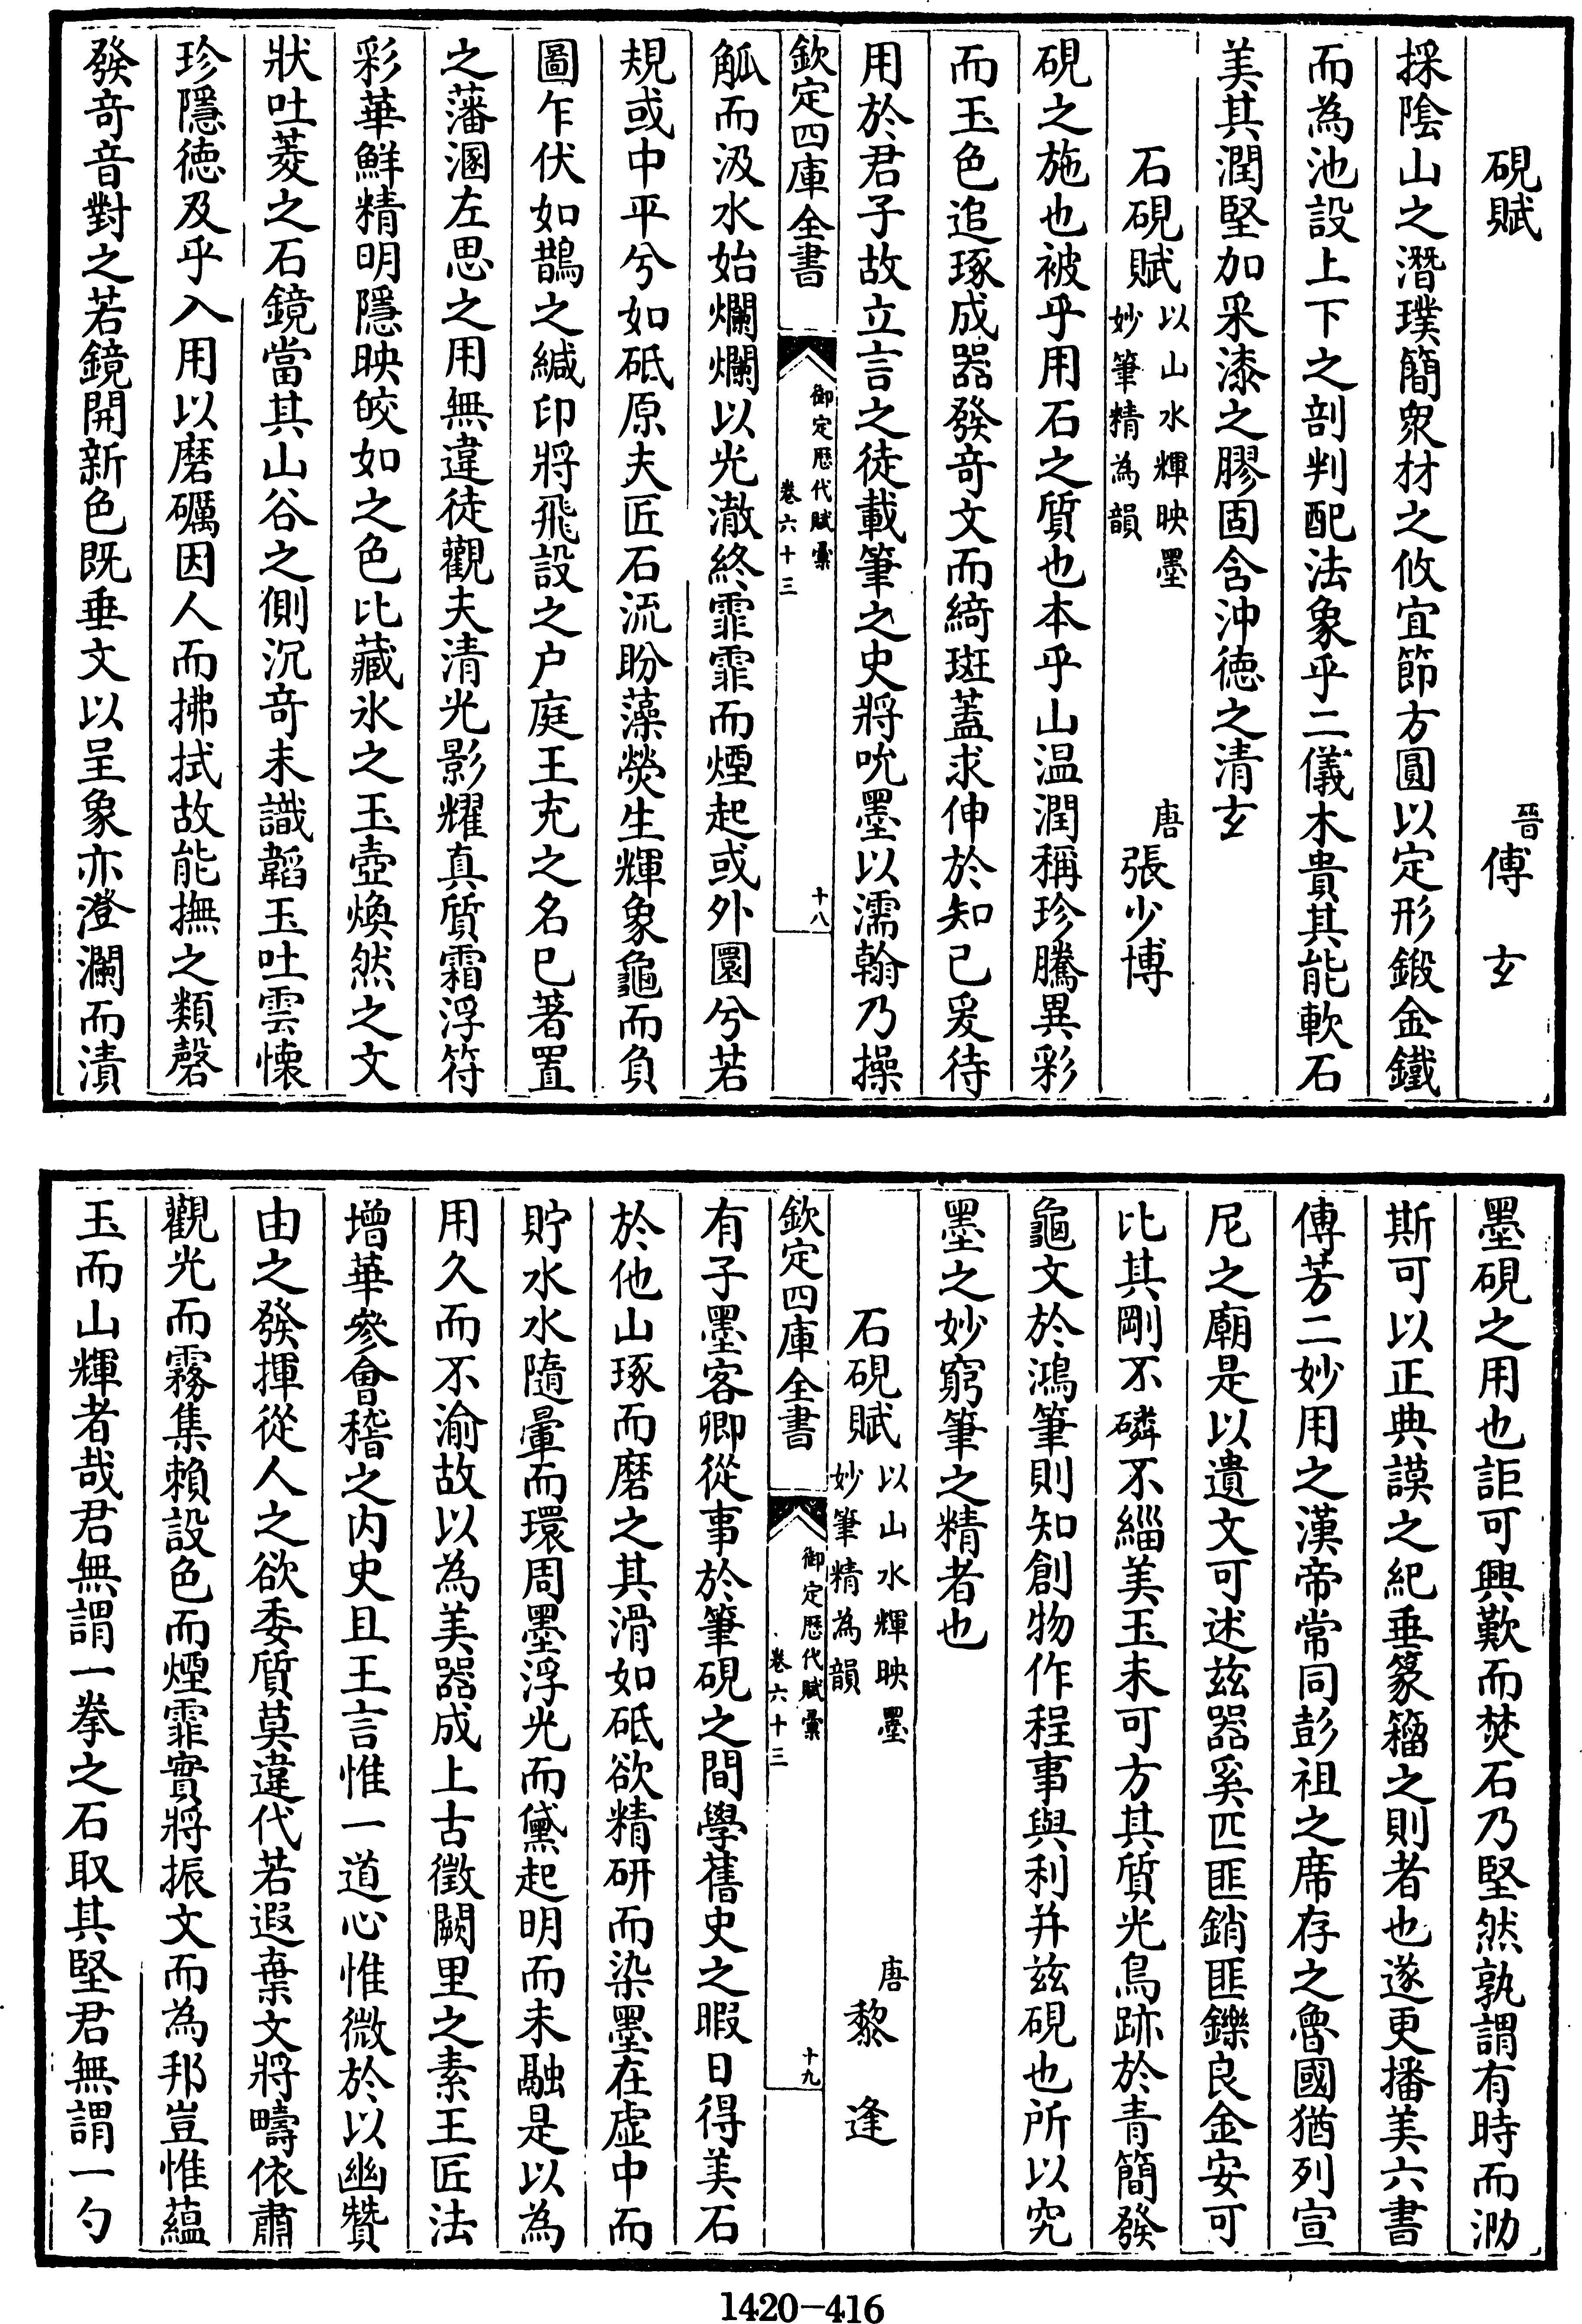 硯賦　晉傅玄
採陰山之潛璞簡衆材之攸宜節方圓以定形鍛金鐵
而為池設上下之剖判配法象乎二儀木貴其能軟石
美其潤堅加采漆之膠固含沖徳之清玄
石硯賦以山水輝映墨妙筆精為韻　唐張少博
硯之施也被乎用石之質也本乎山温潤稱珍騰異彩
而玉色追琢成器發竒文而綺斑蓋求伸於知已爰待
用於君子故立言之徒載筆之史將吮墨以濡翰乃操
欽定四庫全書　御定歴代賦彙卷六十三　十八
觚而汲水始爛爛以光澈終霏霏而煙起或外圜兮若
規或中平兮如砥原夫匠石流盼藻熒生輝象龜而負
圖乍伏如鵲之緘印將飛設之户庭王充之名已著置
之藩溷左思之用無違徒觀夫清光影耀真質霜浮符
彩華鮮精明隱映皎如之色比藏氷之玉壺煥然之文
狀吐菱之石鏡當其山谷之側沉竒未識韜玉吐雲懐
珍隱徳及乎入用以磨礪因人而拂拭故能撫之類磬
發竒音對之若鏡開新色既垂文以呈象亦澄瀾而漬
墨硯之用也詎可興歎而焚石乃堅然孰謂有時而泐
斯可以正典謨之紀垂篆籀之則者也遂更播美六書
傳芳二妙用之漢帝常同彭祖之席存之魯國猶列宣
尼之廟是以遺文可述兹器奚匹匪銷匪鑠良金安可
比其剛不磷不緇美玉未可方其質光鳥跡於青簡發
龜文於鴻筆則知創物作程事與利并兹硯也所以究
墨之妙窮筆之精者也
石硯賦以山水輝映墨妙筆精為韻　唐黎逢
欽定四庫全書　御定歴代賦彙卷六十三　十九
有子墨客卿從事於筆硯之間學舊史之暇日得美石
於他山琢而磨之其滑如砥欲精研而染墨在虚中而
貯水水隨暈而環周墨浮光而黛起明而未融是以為
用久而不渝故以為美器成上古徴闕里之素王匠法
增華參會稽之内史且王言惟一道心惟微於以幽贊
由之發揮從人之欲委質莫違代若遐棄文將疇依肅
觀光而霧集賴設色而煙霏實將振文而為邦豈惟蘊
玉而山輝者哉君無謂一拳之石取其堅君無謂一勺
1420-416